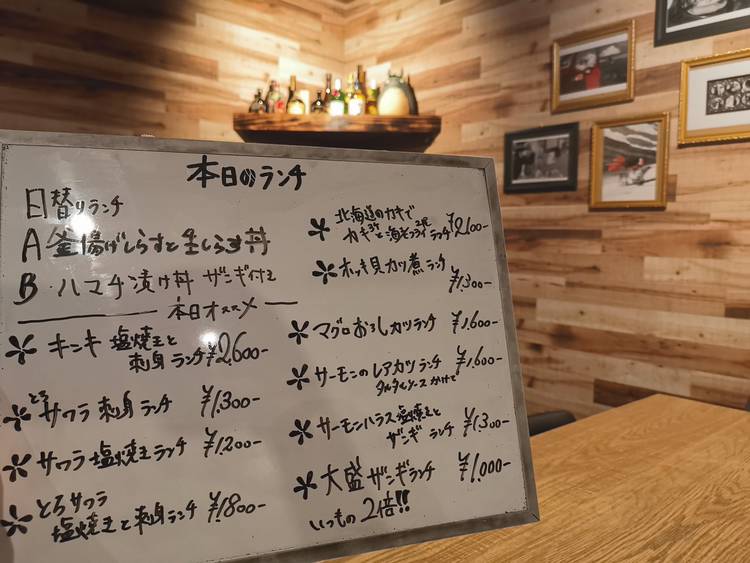 本日のランチ
日替りランチ
A 釜揚げしらすと生しらす丼
B・ハマチ漬け丼 ザンギ付き
本日オススメ
* キンキ 塩焼きと
刺身ランチ ¥2,600-
* とろサワラ 刺身ランチ ¥1,300-
* サワラ塩焼きランチ ¥1,200-
* とろサワラ
塩焼きと刺身ランチ ¥1,800-
* 北海道のカキで
カキ3ヶと海老フライ2尾ランチ ¥2,100-
* ホッキ貝カツ煮ランチ
¥1,300-
* マグロおろしカツランチ ¥1,600-
* サーモンのレアカツランチ ¥1,600-
タルタルソースかけて
* サーモンハラス塩焼きと
ザンギランチ ¥1,300-
* 大盛ザンギランチ ¥1,000-
いつもの2倍!!